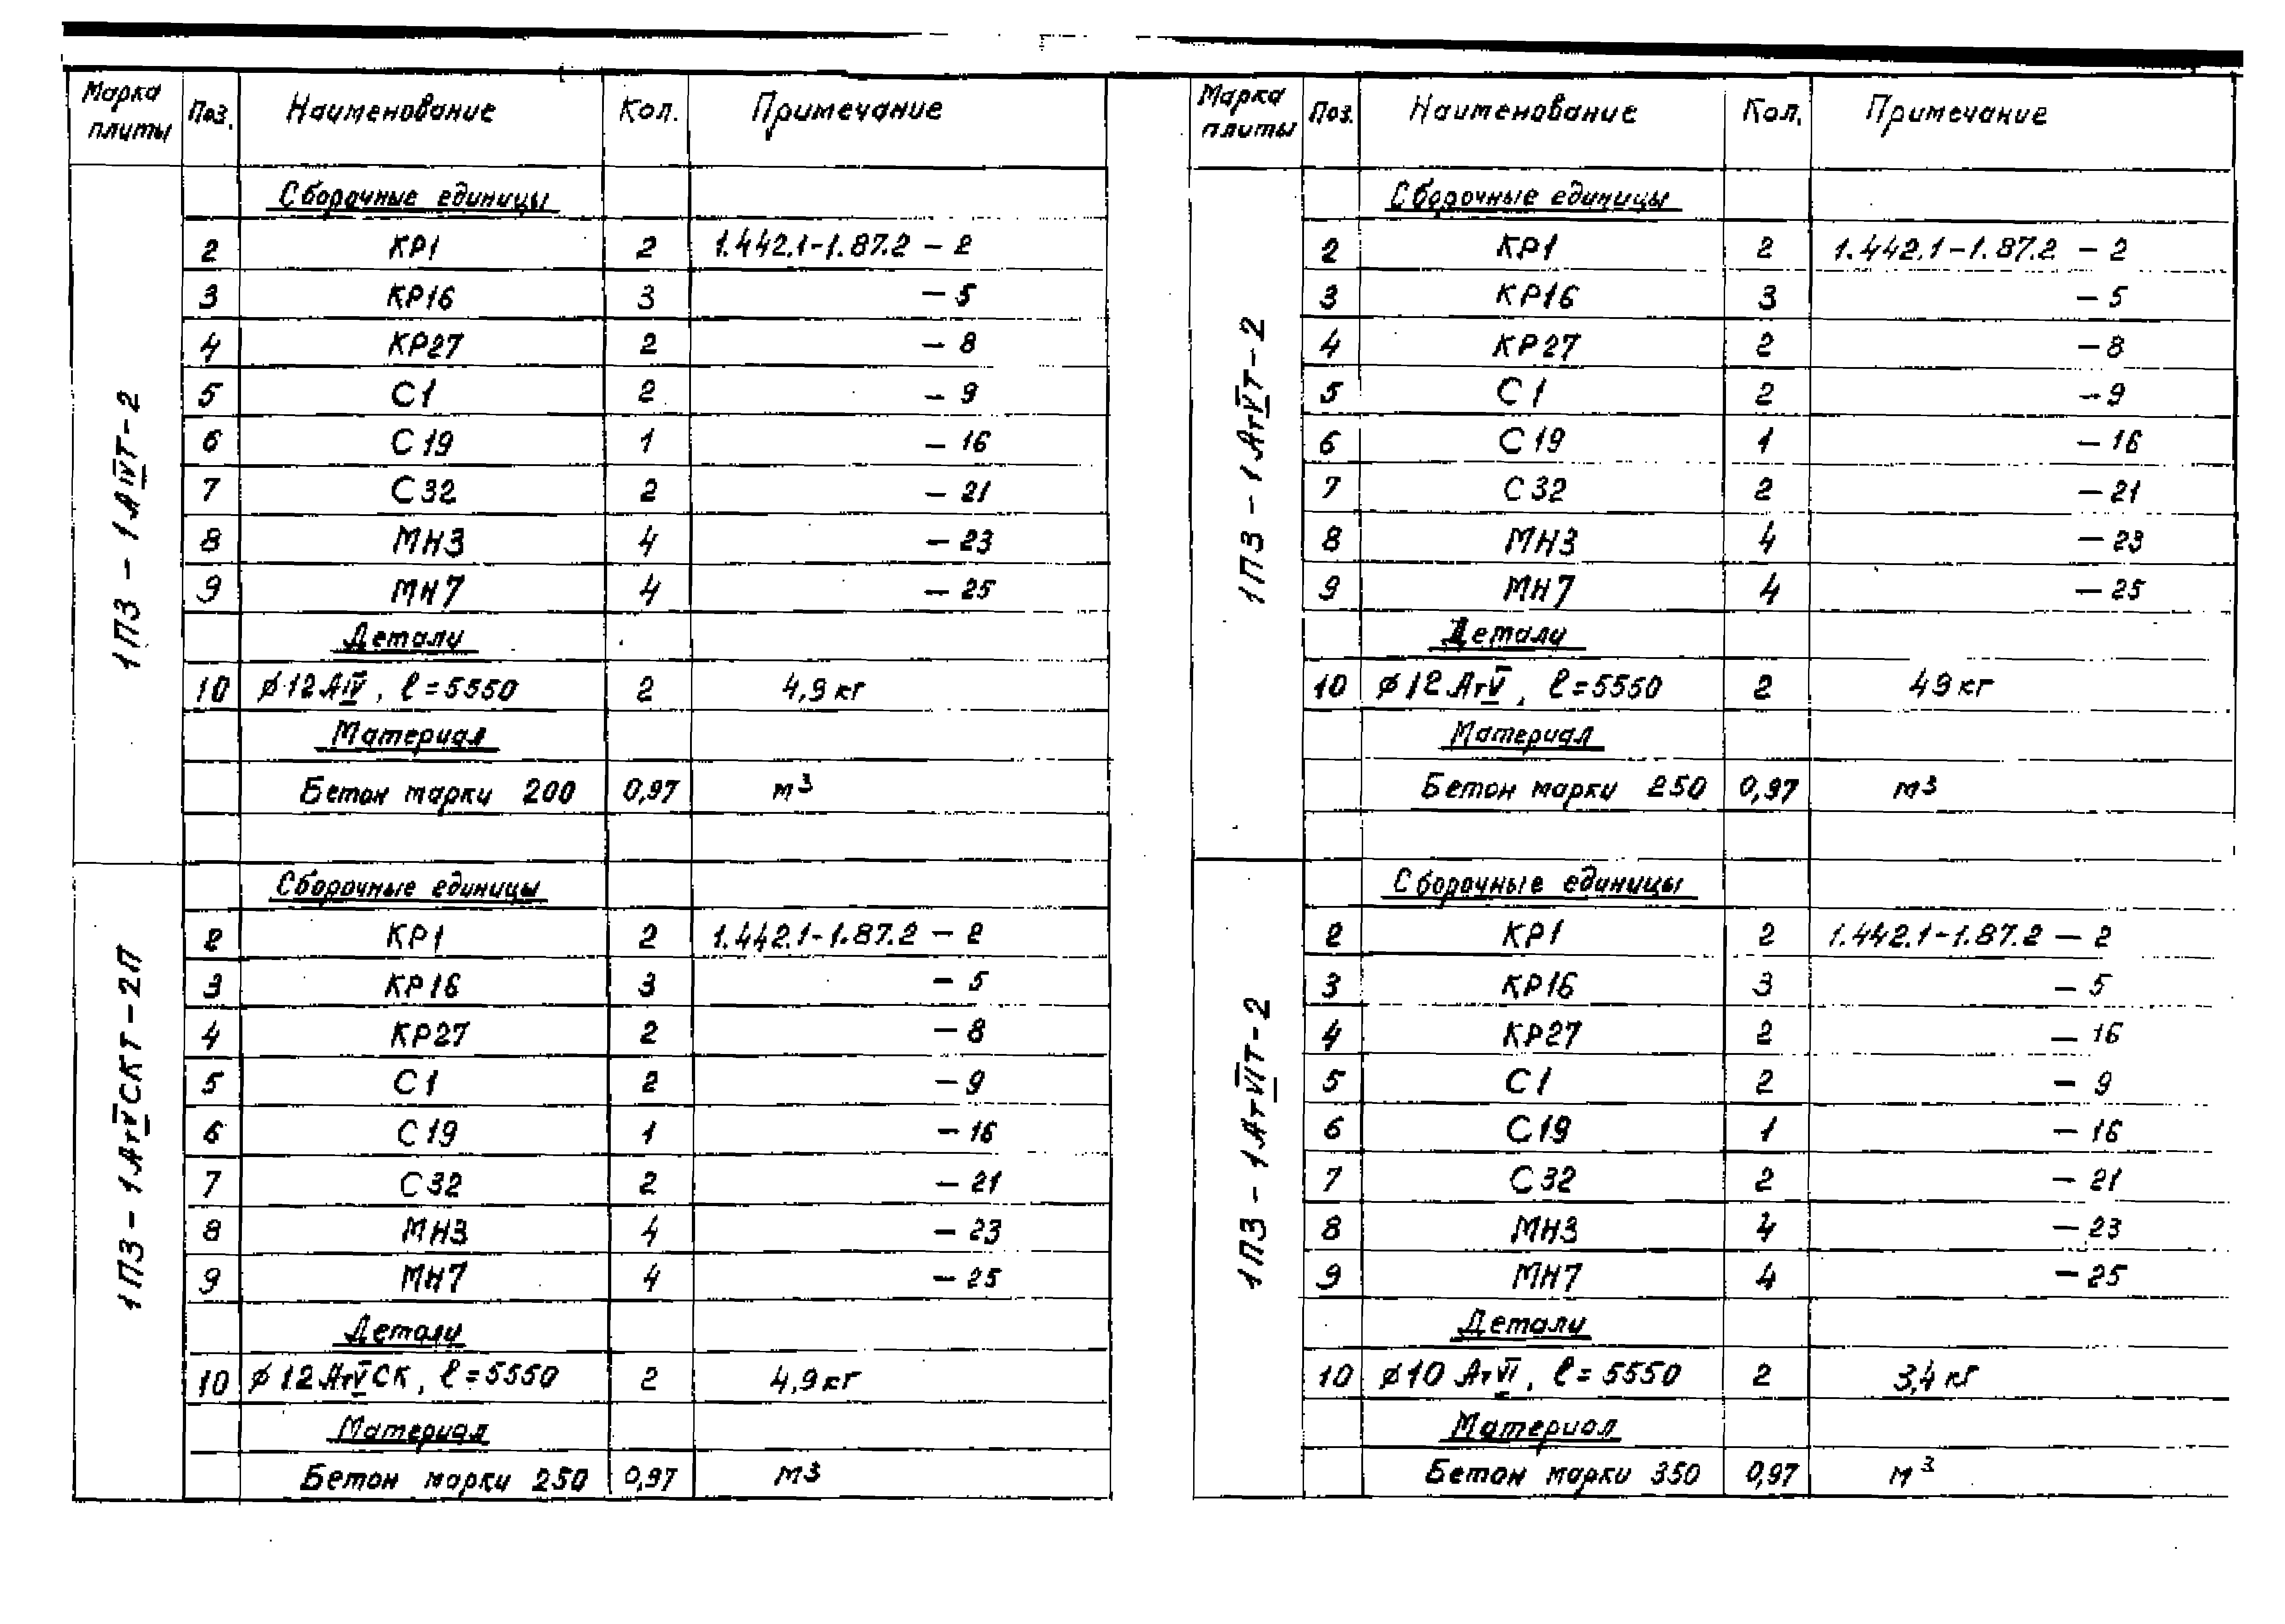 Марка плиты Поз. Наименование Кол. Примечание
1ПЗ-1АIVТ-2
Сборочные единицы
2 КР1 2 1.442.1-1.87.2 - 2
3 КР16 3 - 5
4 КР27 2 - 8
5 С1 2 - 9
6 С19 1 - 16
7 С32 2 - 21
8 МН3 4 - 23
9 МН7 4 - 25
Детали
10 ⌀12АIV, ℓ=5550 2 4,9кг
Материал
Бетон марки 200 0,97 м³
1ПЗ-1АтVСКТ-2П
Сборочные единицы
2 КР1 2 1.442.1-1.87.2 - 2
3 КР16 3 - 5
4 КР27 2 - 8
5 С1 2 - 9
6 С19 1 - 16
7 С32 2 - 21
8 МН3 4 - 23
9 МН7 4 - 25
Детали
10 ⌀12АтVСК, ℓ=5550 2 4,9кг
Материал
Бетон марки 250 0,97 м3
Марка плиты Поз. Наименование Кол. Примечание
1ПЗ-1АтVТ-2
Сборочные единицы
2 КР1 2 1.442.1-1.87.2 - 2
3 КР16 3 - 5
4 КР27 2 - 8
5 С1 2 - 9
6 С19 1 - 16
7 С32 2 - 21
8 МН3 4 - 23
9 МН7 4 - 25
Детали
10 ⌀12АтV, ℓ=5550 2 49кг
Материал
Бетон марки 250 0,97 м3
1ПЗ-1АтVIТ-2
Сборочные единицы
2 КР1 2 1.442.1-1.87.2 - 2
3 КР16 3 - 5
4 КР27 2 - 16
5 С1 2 - 9
6 С19 1 - 16
7 С32 2 - 21
8 МН3 4 - 23
9 МН7 4 - 25
Детали
10 ⌀10 АтVI, ℓ=5550 2 3,4кг
Материал
Бетон марки 350 0,97 м³